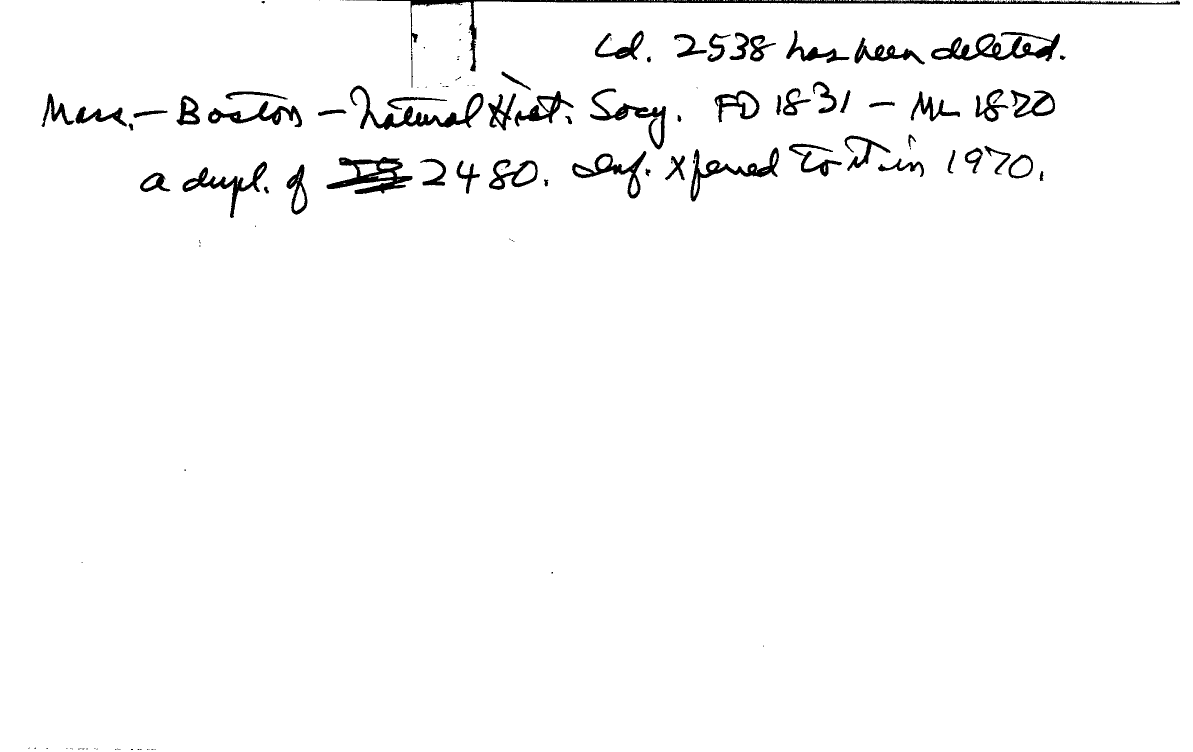 Cd. 2538 has been deleted.
Mass. – Boston – Natural Hist. Socy. FD 1831 – ML 1870
a dupl. of 2480. Inf. xferred to it in 1970.